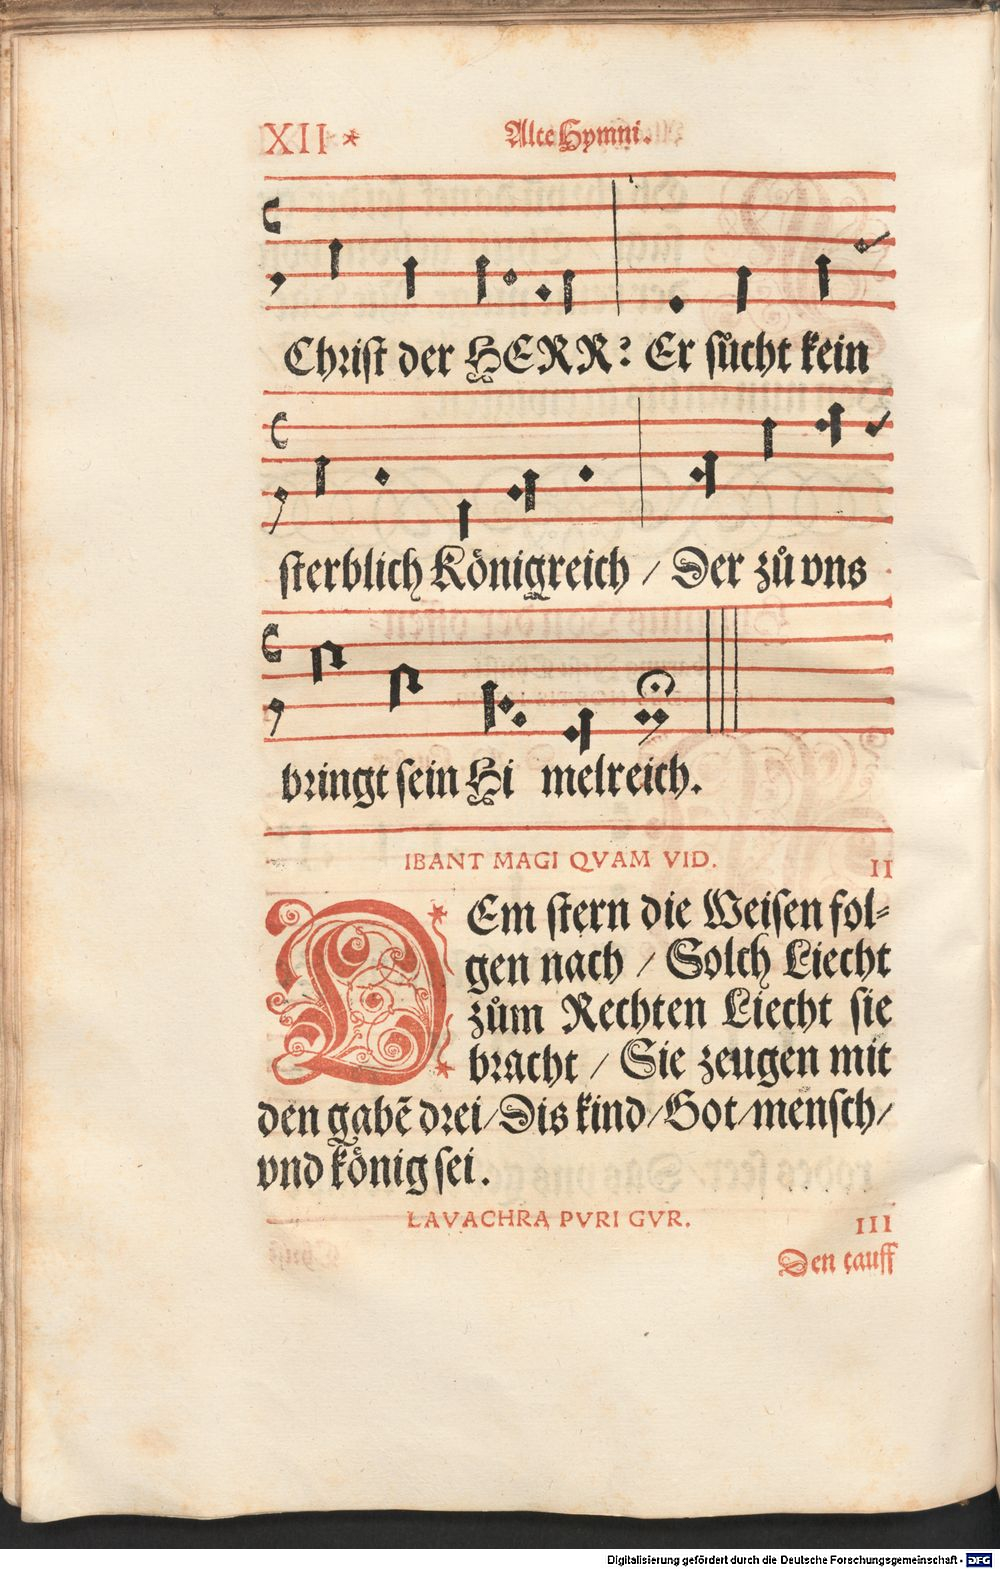 XII *
Alte Hymni.
Chriſt der HERR? Er ſuͦcht kein
ſterblich Koͤnigreich / Der zuͦ vns
bringt ſein Hi melreich.
IBANT MAGI QVAM VID.
II
DEm ſtern die Weiſen fol⸗
gen nach / Solch Liecht
zuͦm Rechten Liecht ſie
bracht / Sie zeugen mit
den gabē drei / Dis kind / Got / menſch /
vnd koͤnig ſei.
LAVACHRA PVRI GVR.
III
Den tauff
Digitalisierung gefördert durch die Deutsche Forschungsgemeinschaft - DFG